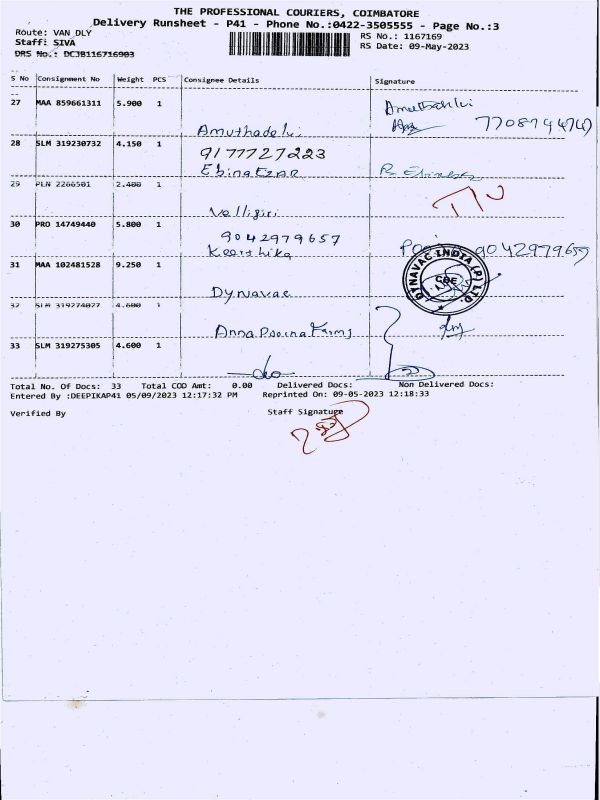 THE PROFESSIONAL COURIERS, COIMBATORE
Delivery Runsheet - P41 - Phone No.:0422-3505555 - Page No.:3
Route: VAN_DLY
Staff: SIVA
DRS No.: DCJB116716903
RS No.: 1167169
RS Date: 09-May-2023
S No Consignment No Weight PCS Consignee Details Signature
27 MAA 859661311 5.900 1 Amuthadevi
28 SLM 319230732 4.150 1 9177727223
EbinaEzar
29 PLN 2266501 2.400 1 Velligiri
30 PRO 14749440 5.800 1 9042979657 9042979657
Keerthika
31 MAA 102481528 9.250 1 Dynavac
DYNAVAC INDIA (P) LTD.
CBE
32 SLM 319274077 4.600 1 Anna Poorna Farms
33 SLM 319275305 4.600 1 do
Total No. Of Docs: 33 Total COD Amt: 0.00 Delivered Docs: Non Delivered Docs:
Entered By :DEEPIKAP41 05/09/2023 12:17:32 PM Reprinted On: 09-05-2023 12:18:33
Verified By Staff Signature